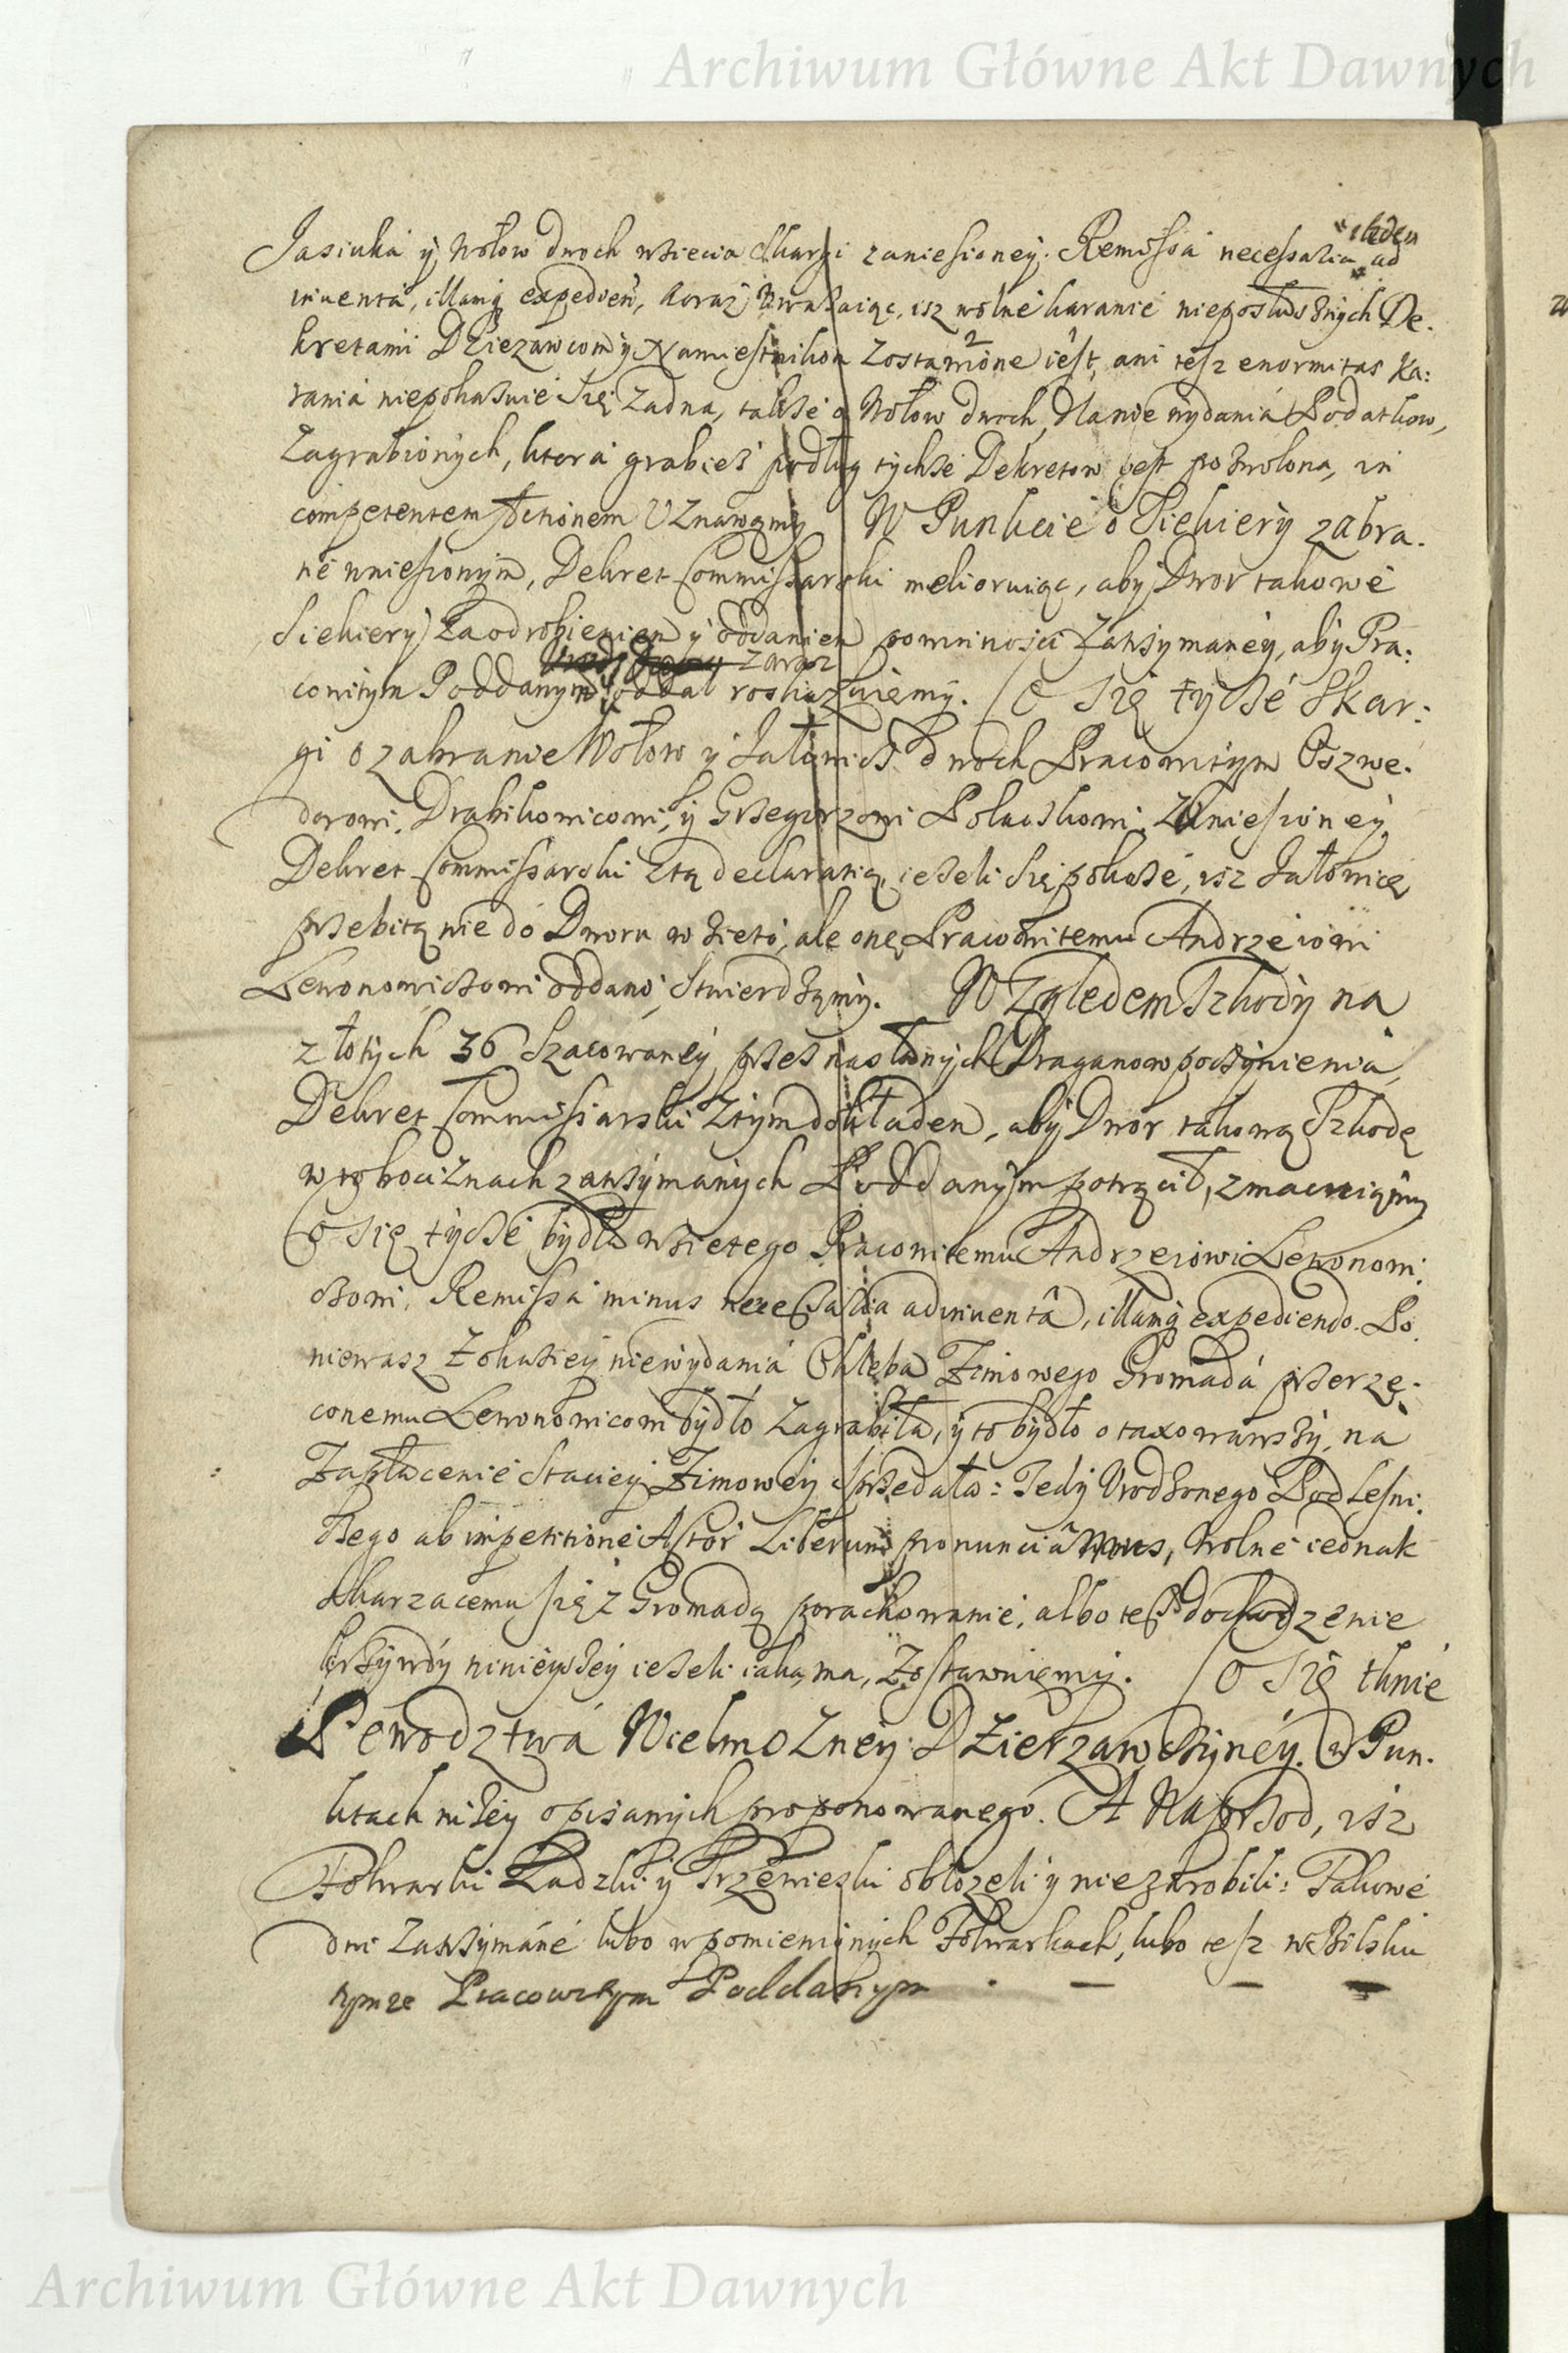 Archiwum Główne Akt Dawnych
Jasiuka ÿ Wołow dwoch wzięcia skargi zaniesioneÿ. Remissa necessaria ad
inuenta, illamq expedien, uwazaiąc, isz wolne karanie nieposłusznych De-
kretami Dzierzawcom ÿ Namiestnikom zostawione iest, ani tesz enormitas ka:
rania niepokazuie się zadna, takze o Wołow dwoch, dla nie wydania Podatkow,
Zagrabionych, ktora grabiez podług tychze Dekretow iest pozwolona, in
competentem Actionem Uznawamy. W Punkcie o Siekierÿ zabra-
ne wniesionÿm, Dekret Commissarski meliorując, abÿ Dwor takowe
Siekierÿ za odrobieniem ÿ oddaniem powinnosci zatrzymaneÿ, abÿ Pra:
zaraz
cowitym Poddanym oddał roskazuiemÿ. Co się tycze Skar:
gi o zabranie Wołow ÿ Jałowicz dwoch Pracowitym Oszwe-
dorowi, Drabikowicowi, ÿ Grzegorzowi zaniesioneÿ
Dekret Commissarski z tą declaratią, iezeli się pokaze, isz Jałowicę
przebitą nie do Dworu wzieto, ale onę Pracowitemu Andrzeiowi
Lewonowiczowi oddano, stwierdzamÿ. Względem Szkodÿ na
złotÿch 36 Szacowaneÿ przez nasłanych Draganow poczynienia,
Dekret Commissarski z tym dokładem, abÿ Dwor takową Szkodę
w robociznach zatrzÿmanÿch Poddanÿm potrącił, zmacniamÿ
Co się tÿcze bÿdła wzietego Pracowitemu Andrzeiowi Lewonowi-
czowi, Remissa minus necessaria adinuenta, illamq expediendo. Po-
niewasz z okaziey niewÿdania Chleba Zimowego Gromada przerze-
conemu Lewonowicowi bÿdło zagrabiła, ÿ to bÿdło otaxowawszÿ, na
Zapłacenie Stacieÿ Zimoweÿ sprzedała: Tedÿ Urodzonego Podlesni-
czego ab impetitione Actor Liberum pronunciamus, Wolne iednak
skarzacemu się z Gromadą porachowanie, albo tesz dochodzenie
krzywdÿ ninieyszeÿ iezeli iaką ma, zostawuiemÿ. Co się tknie
Powodztwa Wielmozneÿ Dzierzawczÿneÿ. w Pun-
ktach nizeÿ opisanÿch proponowanego. A Naprzod, isz
Folwarki Ladzki ÿ Trzewieski oblozeli ÿ nie zarobili: Takowe
dni zatrzÿmane lubo w pomienionÿch Folwarkach, lubo tesz w Bilsku
tymze Pracowitym Poddanym
Archiwum Główne Akt Dawnych